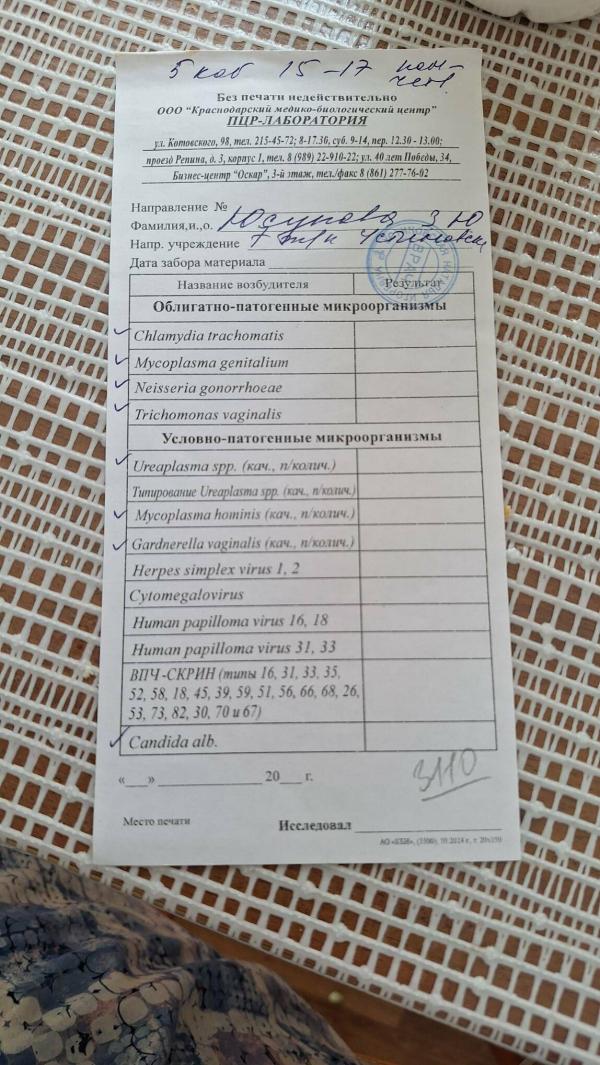 5 каб 15-17 пон-
чет!
Без печати недействительно
ООО "Краснодарский медико-биологический центр"
ПЦР-ЛАБОРАТОРИЯ
ул. Котовского, 98, тел. 215-45-72; 8-17.30, суб. 9-14, пер. 12.30 - 13.00;
проезд Репина, д. 3, корпус 1, тел. 8 (989) 22-910-22; ул. 40 лет Победы, 34,
Бизнес-центр "Оскар", 3-й этаж, тел./факс 8 (861) 277-76-02
Направление №
Фамилия,и.,о. Юсупова З Ю
Напр. учреждение 7
Дата забора материала
ВРАЧ
Название возбудителя Результат
Облигатно-патогенные микроорганизмы
✓ Chlamydia trachomatis
✓ Mycoplasma genitalium
✓ Neisseria gonorrhoeae
✓ Trichomonas vaginalis
Условно-патогенные микроорганизмы
✓ Ureaplasma spp. (кач., п/колич.)
Типирование Ureaplasma spp. (кач., п/колич.)
✓ Mycoplasma hominis (кач., п/колич.)
✓ Gardnerella vaginalis (кач., п/колич.)
Herpes simplex virus 1, 2
Cytomegalovirus
Human papilloma virus 16, 18
Human papilloma virus 31, 33
ВПЧ-СКРИН (типы 16, 31, 33, 35,
52, 58, 18, 45, 39, 59, 51, 56, 66, 68, 26,
53, 73, 82, 30, 70 и 67)
✓ Candida alb.
«___» ____________ 20___ г.
3110
Место печати
Исследовал